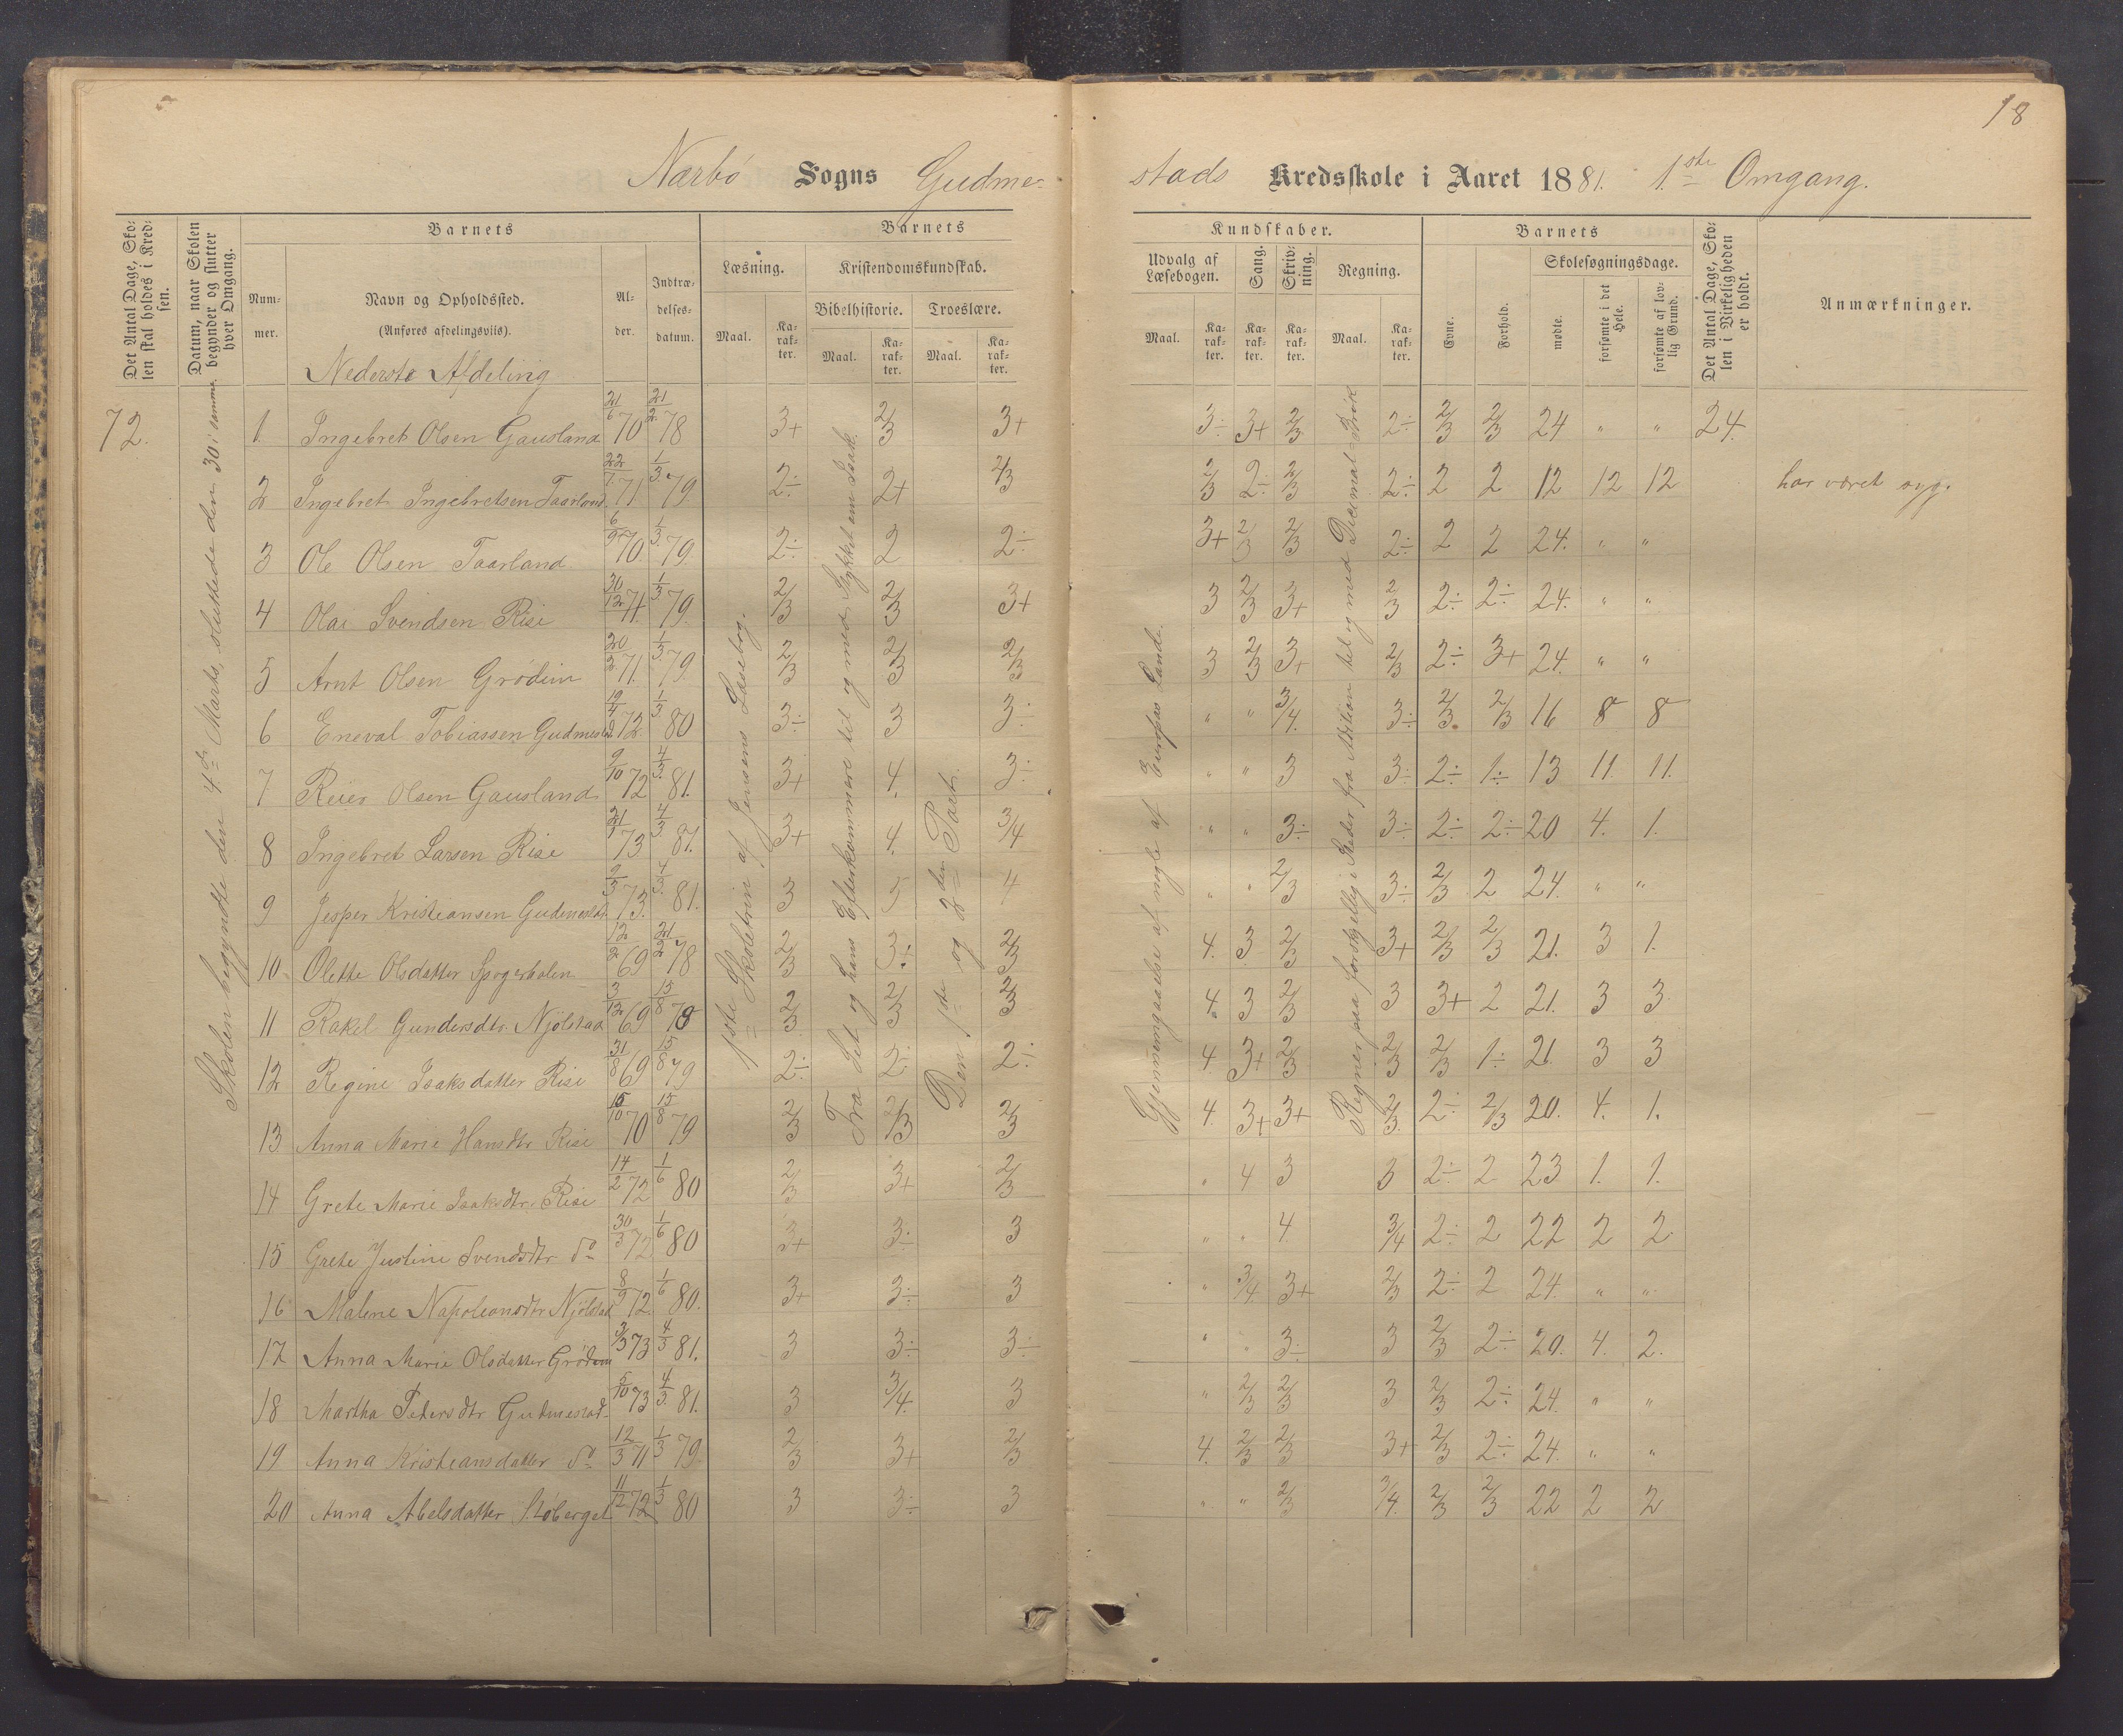 18
Nærbø Sogns Gudme-
stads Kredsskole i Aaret 1881. 1ste Omgang.
Det Antal Dage, Skolen skal holdes i Kredsen.
Datum, naar Skolen begynder og slutter hver Omgang.
Barnets
Nummer.
Navn og Opholdssted.
(Anføres afdelingsviis).
Alder.
Indtrædelsesdatum.
Barnets
Læsning.
Kristendomskundskab.
Bibelhistorie.
Troeslære.
Maal.
Karakter.
Maal.
Karakter.
Maal.
Karakter.
Kundskaber.
Udvalg af Læsebogen.
Sang.
Skrivning.
Regning.
Maal.
Karakter.
Karakter.
Karakter.
Maal.
Karakter.
Barnets
Evne.
Forhold.
Skolesøgningsdage.
mødte.
forsømte i det Hele.
forsømte af lovlig Grund.
Det Antal Dage, Skolen i Virkeligheden er holdt.
Anmærkninger.
Nederste Afdeling
72.
Skolen begyndte den 4de Marts, sluttede den 30 i samme.
1ste Skoletrin af Jensens Læsebog.
Fra Set og hans Efterkommere til og med Stykket om Isak.
Den 1ste og 2den Part.
Gjennemgaaelse af nogle af Europas Lande.
Regner paa forskjellig i Steder fra Adition til og med Decimal-Brøk
1. Ingebret Olsen Gausland 21/6 70 21/2 78 3+ 2/3 3+ 3÷ 3+ 2/3 2÷ 2/3 2/3 24 " " 24.
2 Ingebret Ingebretsen Taarland 22/7 71 1/3 79 2÷ 2+ 2/3 2/3 2÷ 2/3 2÷ 2 2 12 12 12 har været syg.
3 Ole Olsen Taarland 6/9 70. 1/3 79. 2÷ 2 2÷ 3+ 2/3 2/3 2÷ 2 2 24. " "
4 Olai Svendsen Rise 30/12 71. 1/3 79. 2/3 2/3 3+ 3 2/3 3+ 2/3 2÷ 2÷ 24. " "
5 Arnt Olsen Grødim 20/2 71. 1/3 79. 2/3 2/3 2/3 3 2/3 3+ 2/3 2÷ 3+ 24. " "
6 Eneval Tobiassen Gudmestad 19/4 72. 1/3 80 3÷ 3 3÷ " " 3/4. 3÷ 2/3. 2/3 16 8 8
7 Reier Olsen Gausland 9/10 72 4/3 81. 3+ 4. 3÷ " " 3 3÷ 2÷ 1÷ 13 11. 11.
8 Ingebret Larsen Rise 21/1 73 4/3 81. 3+ 4. 3/4 " " 3÷ 3÷ 2÷ 2÷ 20 4. 1.
9 Jesper Kristiansen Gudmestad 9/3 73. 4/3 81. 3 5 4 " " 2/3 3÷ 2/3 2 24. " "
10. Olette Olsdatter 12/2 69 21/2 78 2/3 3÷ 2/3 4. 3 2/3 3+ 2/3 2/3 21. 3 1.
11 Rakel Gundersdtr. Njølstad 3/12 69 15/8 78 2/3 2/3 2/3 4. 3 2/3 3 3+ 2 21. 3 3
12 Regine Isaksdatter Rise 31/8 69 15/8 79 2÷ 2÷ 2÷ 4 3+ 2/3 2/3 2/3 1÷ 21. 3 3
13 Anna Marie Hansdtr Rise 15/10 70 15/8 79 2/3 2/3 2/3 4. 3+ 3+ 2/3. 2÷ 2/3 20. 4. 1.
14 Grete Marie Isaksdtr. Rise 14/2 72 1/6 80 2/3 3+ 2/3 " 4 3 3 2÷ 2 23 1. 1.
15 Grete Justine Svendsdtr do 30/3 72 1/6 80 3+ 3÷ 3 " " 4. 3/4 2÷ 2 22 2 2
16 Malene Napoleonsdtr Njølstad 8/9 72. 1/6 80. 3+ 3÷ 3 " 3/4. 3+ 2/3 2÷ 2 24. " "
17 Anna Marie Olsdatter Grødem 3/3 73 4/3 81. 3 3÷ 3÷ " " 3÷ 3 2/3 2÷ 20. 4. 2.
18 Martha Petersdtr Gudmestad 5/10 73 4/3 81. 3 3/4. 3 " 2/3 2/3 3 2/3 2÷ 24. " "
19 Anna Kristiansdatter do 12/3 71 1/3 79 2/3 3+ 2/3 4. 2/3 2/3 3+ 2/3 2÷ 24. " "
20 Anna Abelsdatter 11/12 72 1/3 80 3 3÷ 3 " " 2/3 3/4. 2/3 2/3 22 2 2